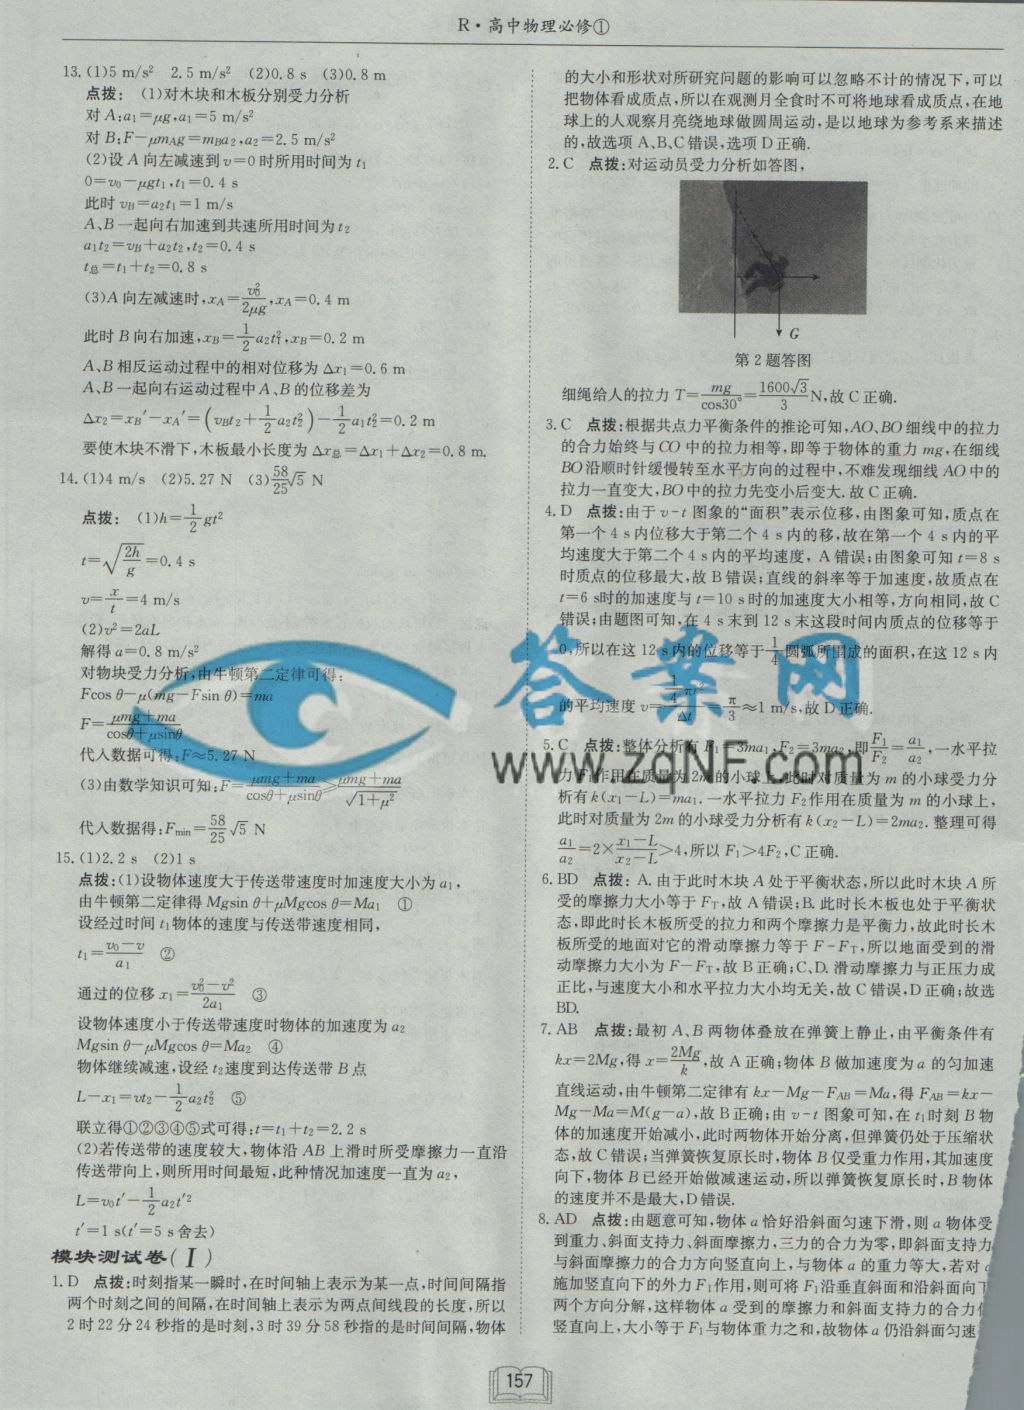 R·高中物理必修①
13.(1)5 m/s² 2.5 m/s² (2)0.8 s (3)0.8 m
点拨：(1)对木块和木板分别受力分析
对 A:a₁=μg,a₁=5 m/s²
对 B:F-μm_Ag=m_Ba₂,a₂=2.5 m/s²
(2)设 A 向左减速到 v=0 时所用时间为 t₁
0=v₀-μgt₁,t₁=0.4 s
此时 v_B=a₂t₁=1 m/s
A、B 一起向右加速到共速所用时间为 t₂
a₁t₂=v_B+a₂t₂,t₂=0.4 s
t总=t₁+t₂=0.8 s
(3)A 向左减速时,x_A=v₀²/2μg,x_A=0.4 m
此时 B 向右加速,x_B=1/2 a₂t₁²,x_B=0.2 m
A、B 相反运动过程中的相对位移为 Δx₁=0.6 m
A、B 一起向右运动过程中 A、B 的位移差为
Δx₂=x_B′-x_A′=(v_Bt₂+1/2 a₂t₂²)-1/2 a₁t₂²=0.2 m
要使木块不滑下,木板最小长度为 Δx总=Δx₁+Δx₂=0.8 m.
14.(1)4 m/s (2)5.27 N (3)58/25 √5 N
点拨：(1)h=1/2 gt²
t=√(2h/g)=0.4 s
v=x/t=4 m/s
(2)v²=2aL
解得 a=0.8 m/s²
对物块受力分析,由牛顿第二定律可得:
Fcos θ-μ(mg-Fsin θ)=ma
F=(μmg+ma)/(cosθ+μsinθ)
代入数据可得:F≈5.27 N
(3)由数学知识可知:F=(μmg+ma)/(cosθ+μsinθ)≥(μmg+ma)/√(1+μ²)
代入数据得:F_min=58/25 √5 N
15.(1)2.2 s (2)1 s
点拨:(1)设物体速度大于传送带速度时加速度大小为 a₁,
由牛顿第二定律得 Mgsin θ+μMgcos θ=Ma₁ ①
设经过时间 t₁物体的速度与传送带速度相同,
t₁=(v₀-v)/a₁ ②
通过的位移 x₁=(v₀²-v²)/2a₁ ③
设物体速度小于传送带速度时物体的加速度为 a₂
Mgsin θ-μMgcos θ=Ma₂ ④
物体继续减速,设经 t₂速度到达传送带 B 点
L-x₁=vt₂-1/2 a₂t₂² ⑤
联立得①②③④⑤式可得:t=t₁+t₂=2.2 s
(2)若传送带的速度较大,物体沿 AB 上滑时所受摩擦力一直沿
传送带向上,则所用时间最短,此种情况加速度一直为 a₂,
L=v₀t′-1/2 a₂t′²
t′=1 s(t′=5 s舍去)
模块测试卷(Ⅰ)
1.D 点拨:时刻指某一瞬时,在时间轴上表示为某一点,时间间隔指
两个时刻之间的间隔,在时间轴上表示为两点间线段的长度,所以
2 时 22 分 24 秒指的是时刻,3 时 39 分 58 秒指的是时间间隔,物体
的大小和形状对所研究问题的影响可以忽略不计的情况下,可以
把物体看成质点,所以在观测月全食时不可将地球看成质点,在地
球上的人观察月亮绕地球做圆周运动,是以地球为参考系来描述
的,故选项 A、B、C 错误,选项 D 正确.
2.C 点拨:对运动员受力分析如答图,
G
第 2 题答图
细绳给人的拉力 T=mg/cos30°=1600√3/3 N,故 C 正确.
3.C 点拨:根据共点力平衡条件的推论可知,AO、BO 细线中的拉力
的合力始终与 CO 中的拉力相等,即等于物体的重力 mg,在细线
BO 沿顺时针缓慢转至水平方向的过程中,不难发现细线 AO 中的
拉力一直变大,BO 中的拉力先变小后变大. 故 C 正确.
4.D 点拨:由于 v-t 图象的“面积”表示位移,由图象可知,质点在
第一个 4 s 内位移大于第二个 4 s 内的移,故在第一个 4 s 内的平
均速度大于第二个 4 s 内的平均速度, A 错误;由图象可知 t=8 s
时质点的位移最大,故 B 错误;直线的斜率等于加速度,故质点在
t=6 s时的加速度与 t=10 s 时的加速度大小相等,方向相同,故 C
错误;由题图可知,在 4 s 末到 12 s 末这段时间内质点的位移等于
0,所以在这 12 s 内的位移等于 1/4 圆弧所围成的面积,在这 12 s 内
的平均速度 v=(1/4 πr²)/Δt=π/3≈1 m/s,故 D 正确.
5.C 点拨:整体分析有 F₁=3ma₁,F₂=3ma₂,即 F₁/F₂=a₁/a₂,一水平拉
力 F₁作用在质量为 2m 的小球上,此时对质量为 m 的小球受力分
析有 k(x₁-L)=ma₁.一水平拉力 F₂作用在质量为 m 的小球上,
此时对质量为 2m 的小球受力分析有 k(x₂-L)=2ma₂. 整理可得
a₁/a₂=2×(x₁-L)/(x₂-L)>4,所以 F₁>4F₂,C 正确.
6.BD 点拨: A.由于此时木块 A 处于平衡状态,所以此时木块 A 所
受的摩擦力大小等于 F_T,故 A 错误;B. 此时长木板也处于平衡状
态,即此时长木板所受的拉力和两个摩擦力是平衡力,故此时长木
板所受的地面对它的滑动摩擦力等于 F-F_T,所以地面受到的滑
动摩擦力大小为 F-F_T,故 B 正确;C、D. 滑动摩擦力与正压力成
正比,与速度大小和水平拉力大小均无关,故 C 错误,D 正确;故选
BD.
7.AB 点拨:最初 A、B 两物体叠放在弹簧上静止,由平衡条件有
kx=2Mg,得 x=2Mg/k,故 A 正确;物体 B 做加速度为 a 的匀加速
直线运动,由牛顿第二定律有 kx-Mg-F_AB=Ma,得 F_AB=kx-
Mg-Ma=M(g-a),故 B正确;由 v-t 图象可知,在 t₁时刻 B 物
体的加速度开始减小,此时两物体开始分离,但弹簧仍处于压缩状
态,故 C 错误;当弹簧恢复原长时,物体 B 仅受重力作用,其加速度
向下,物体 B 已经开始做减速运动,所以弹簧恢复原长时,B 物体
的速度并不是最大,D 错误.
8.AD 点拨:由题意可知,物体 a 恰好沿斜面匀速下滑,则 a 物体受
到重力、斜面支持力、斜面摩擦力,三力的合力为零,即斜面支持力
与斜面摩擦力的合力方向竖直向上,与物体 a 的重力等大,若对
施加竖直向下的外力 F₁作用,则可将 F₁沿垂直斜面和沿斜面向
两个方向分解,这样物体 a 受到的摩擦力和斜面支持力的合力
竖直向上,大小等于 F₁与物体重力之和,故物体 a 仍沿斜面匀速
答案网
www.zqNF.com
157